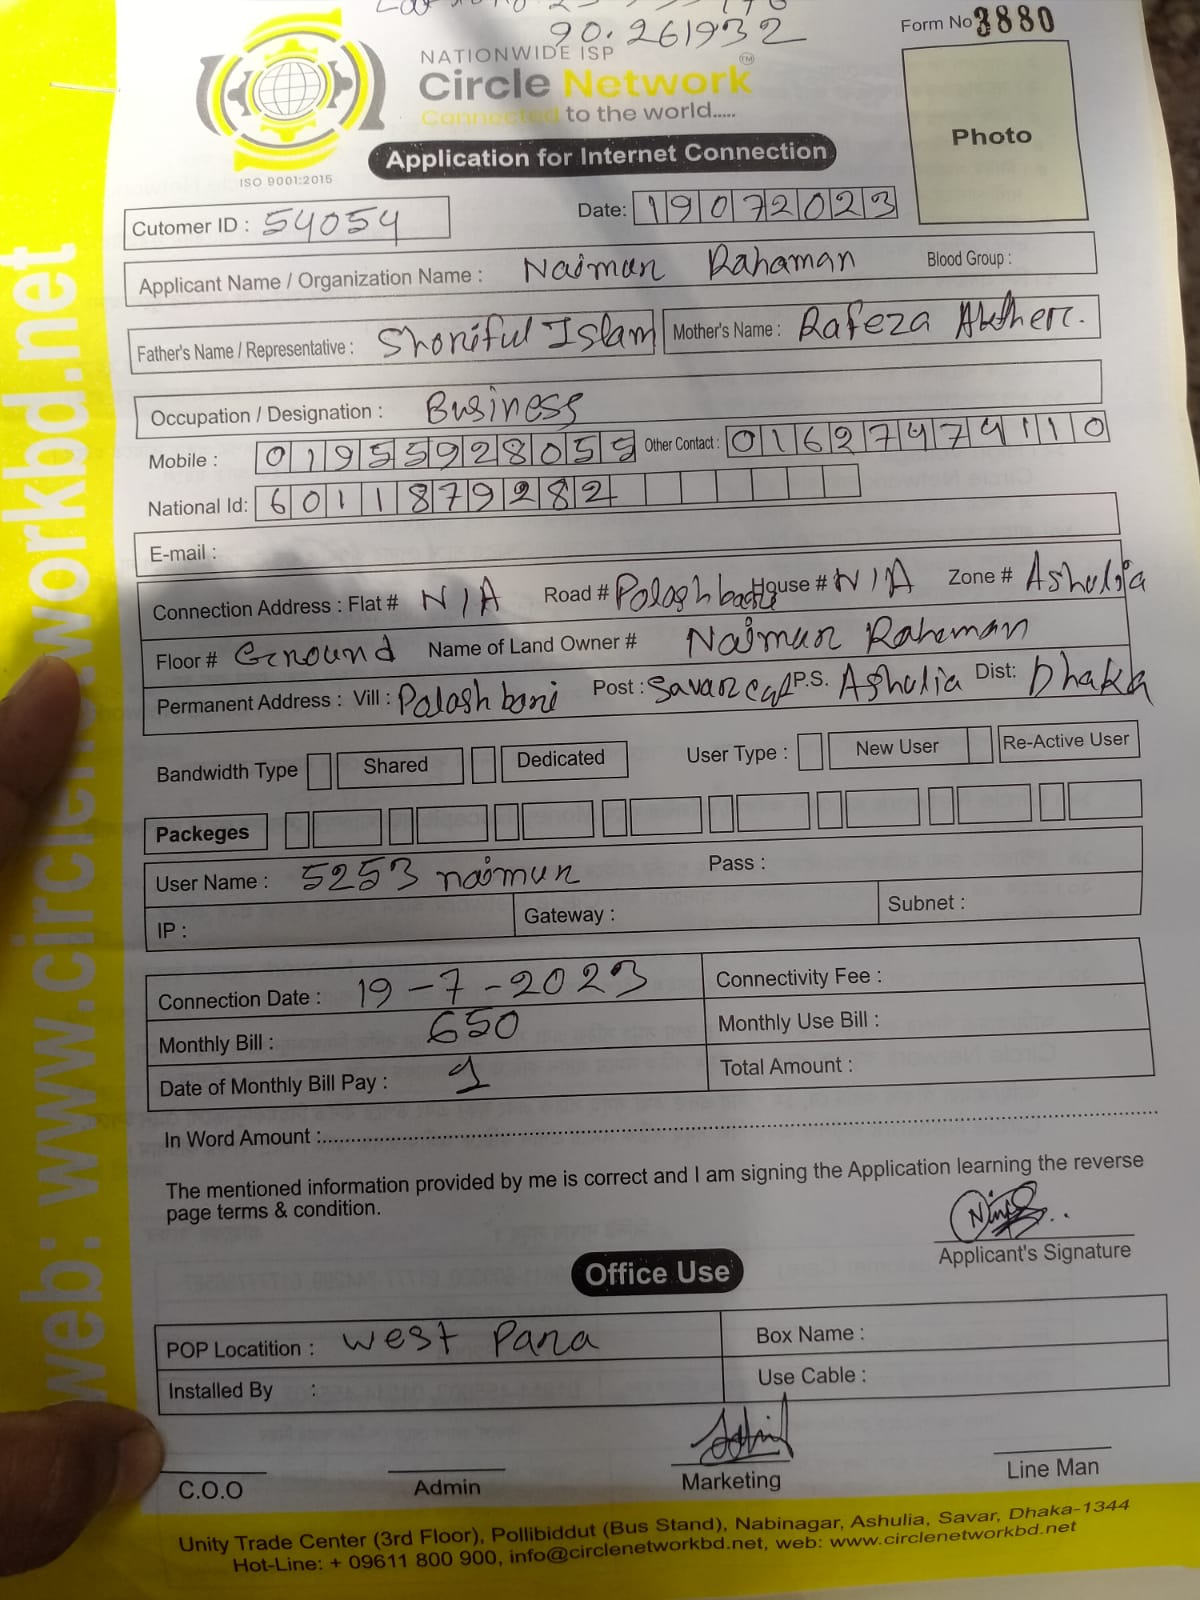 90.261932
Form No 3880
NATIONWIDE ISP
Circle Network TM
Connected to the world.....
ISO 9001:2015
Application for Internet Connection
Photo
Cutomer ID : 54054
Date: 19072023
Applicant Name / Organization Name : Naimur Rahaman Blood Group :
Father's Name / Representative : Shoriful Islam Mother's Name : Rafeza Akther.
Occupation / Designation : Business
Mobile : 01955928055 Other Contact : 01627474110
National Id: 6011879282
E-mail :
Connection Address : Flat # N/A Road # Polashbari House # N/A Zone # Ashulia
Floor # Ground Name of Land Owner # Naimur Rahaman
Permanent Address : Vill : Palash bari Post : Savar Cant P.S. Ashulia Dist: Dhaka
Bandwidth Type Shared Dedicated User Type : New User Re-Active User
Packeges
User Name : 5253 naimur Pass :
IP : Gateway : Subnet :
Connection Date : 19-7-2023 Connectivity Fee :
Monthly Bill : 650 Monthly Use Bill :
Date of Monthly Bill Pay : 1 Total Amount :
In Word Amount :
The mentioned information provided by me is correct and I am signing the Application learning the reverse
page terms & condition.
Applicant's Signature
Office Use
POP Locatition : West Para Box Name :
Installed By : Use Cable :
C.O.O Admin Marketing Line Man
Unity Trade Center (3rd Floor), Pollibiddut (Bus Stand), Nabinagar, Ashulia, Savar, Dhaka-1344
Hot-Line: + 09611 800 900, info@circlenetworkbd.net, web: www.circlenetworkbd.net
web: www.circlenetworkbd.net